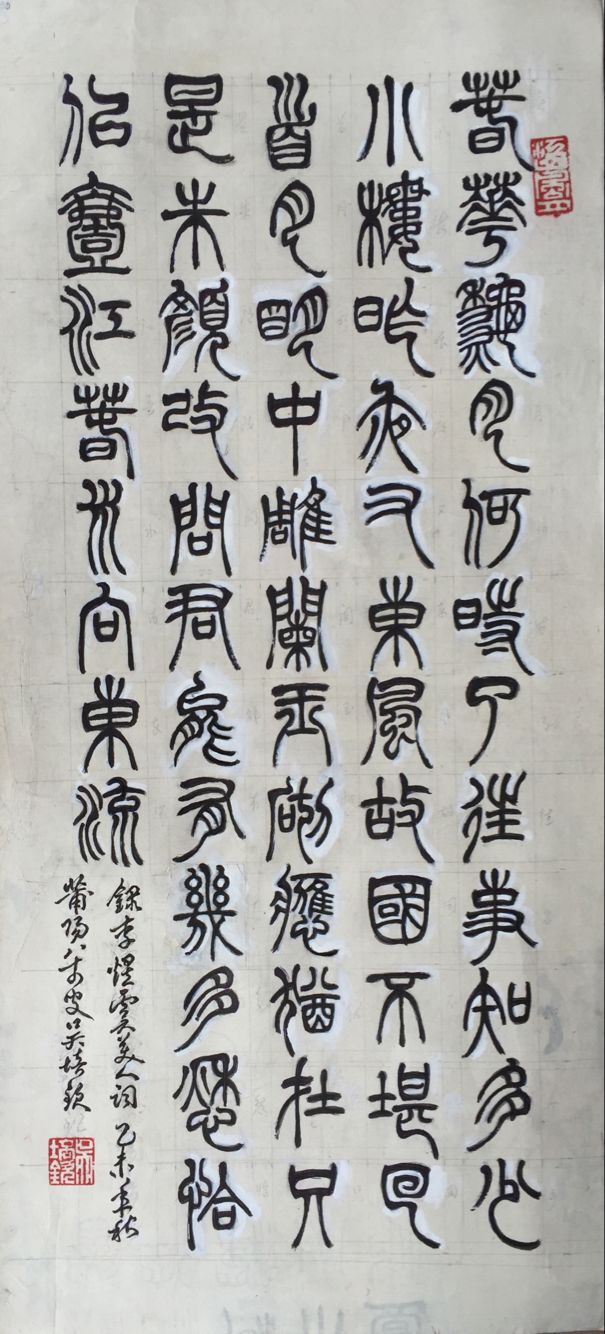 春華龝月何時了往事知多少
小樓昨夜又東風故國不堪回
首月明中雕闌玉砌應猶在只
是朱顏改問君能有幾多愁恰
佀壹江春水向東流
錄李煜虞美人詞 乙未年秋
莆陽八十叟吳培